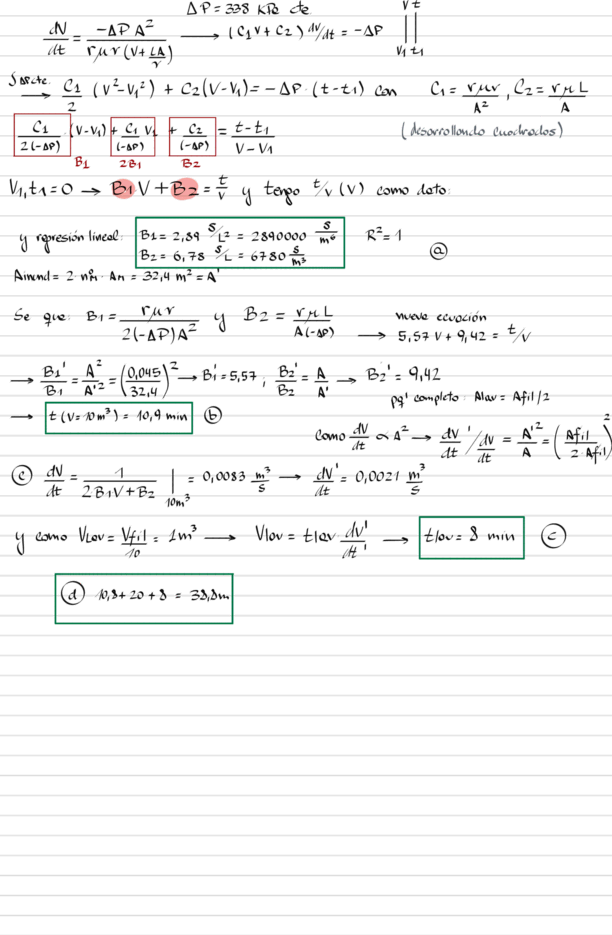 ΔP = 338 kPa cte
dV/dt = -ΔP A² / rμv(V + LA/v) → (C1V + C2) dV/dt = -ΔP ∫∫ V t V1 t1
→ C1/2 (V² - V1²) + C2(V - V1) = -ΔP · (t - t1) con C1 = rμv/A², C2 = rμL/A
C1/2(-ΔP) (V - V1) + C1/(-ΔP) V1 + C2/(-ΔP) = t - t1/V - V1 (desarrollando cuadrados)
B1 2B1 B2
V1, t1 = 0 → B1V + B2 = t/V y tengo t/V (V) como dato:
y regresión lineal: B1 = 2,89 s/L² = 2890000 s/m⁶ R² = 1
B2 = 6,78 s/L = 6780 s/m³ (a)
= 2 · nº · = 32,4 m² = A'
Se que: B1 = rμv/2(-ΔP)A² y B2 = rμL/A(-ΔP) nueva ecuación → 5,57 V + 9,42 = t/V
→ B1'/B1 = A²/A'² = (0,045/32,4)² → B1' = 5,57, B2'/B2 = A/A' → B2' = 9,42
pq' completo: Alav = Afil/2
→ t(V = 10m³) = 10,9 min (b)
Como dV/dt ∝ A² → dV'/dt / dV/dt = A'²/A = (Afil/2·Afil)²
(c) dV/dt = 1/2·B1V + B2 |10m³ = 0,0083 m³/s → dV'/dt = 0,0021 m³/s
y como VLav = Vfil/10 = 1m³ → Vlav = tlav · dV'/dt' → tlav = 8 min (c)
(d) 10,8 + 20 + 8 = 38,8m